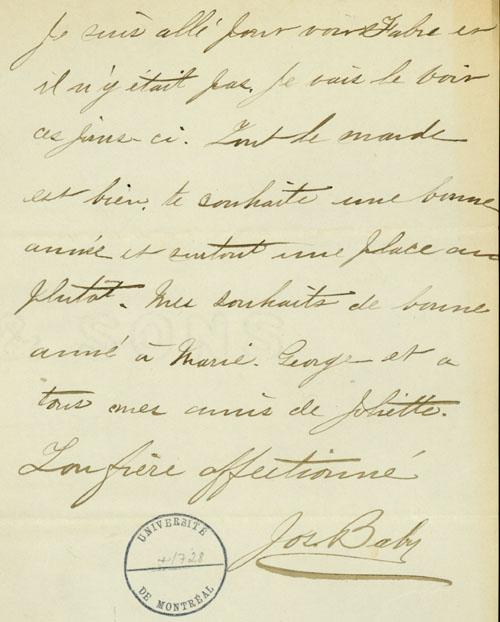 Je suis allé pour voir Fabre et
il n'y était pas, Je vais le voir
ces jours-ci. Tout le monde
est bien, te souhaite une bonne
année et surtout une place au
plutôt. Mes souhaits de bonne
anné à Marie. George et a
tous mes amis de Joliette.
Ton frère affectionné
Jos. Baby
UNIVERSITÉ
DE MONTRÉAL